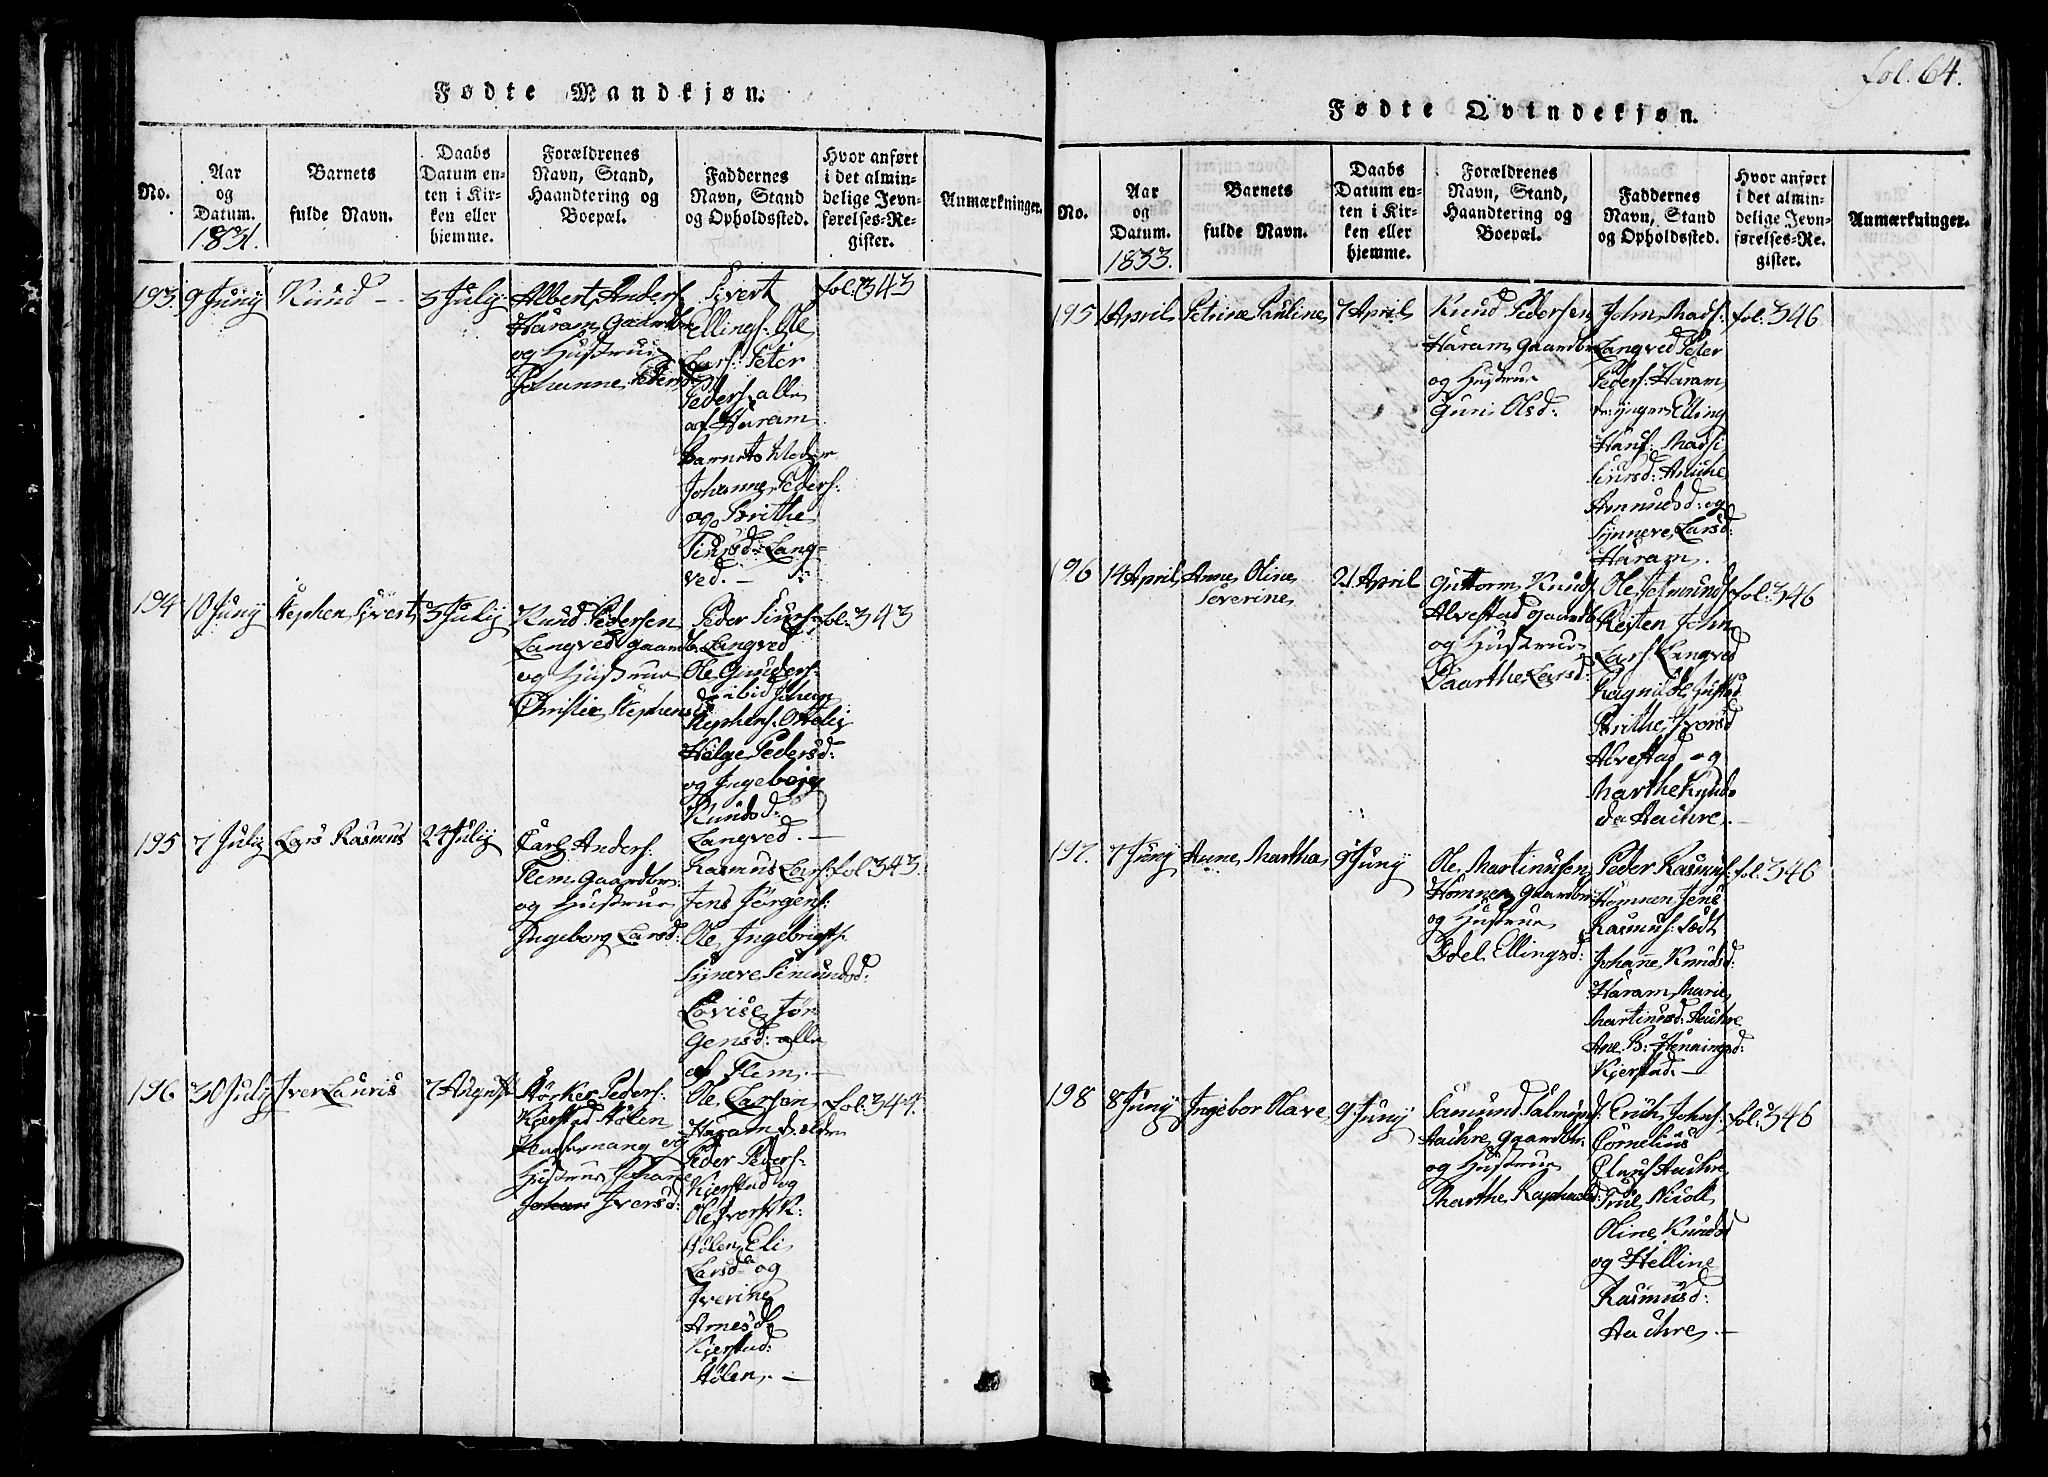 Fødte Mandkjøn.
No.
Aar
og
Datum.
1831.
Barnets
fulde Navn.
Daabs
Datum en-
ten i Kir-
ken eller
hjemme.
Forældrenes
Navn, Stand,
Haandtering og
Boepæl.
Faddernes
Navn, Stand
og Opholdssted.
Hvor anført
i det almin-
delige Jevn-
førelses-Re-
gister.
Anmærkninger.
193
9 Juny
Knud -
3 July
Albert Anders:
Haram Gaardbr
og Hustrue
Johanne Peders
Sivert
Ellings: Ole
Lars: Peter
Peders: alle
af Haram
Barnets Moder
Johanne Peders:
og Brithe
Siursd: Lang-
ved. -
fol: 343
194
10 Juny
Stephen Sivert
3 July
Knud Pedersen
Langved gaardb.
og Hustrue
Christie Stephensd
Peder Siurs:
Langved
Ole Gunders:
ibid Johan
Stephens:
Helge Pedersd:
og Ingeborg
Knudsd:
Langved. -
fol: 343
195
7 July
Lars Rasmus
24 July
Carl Anders:
Flem Gaardbr:
og Hustrue
Ingeborg Larsd:
Rasmus Lars:
Jens Jørgens:
Ole Ingebrigts:
Syneve Simundsd:
Lovise Jør
gensd: alle
af Flem. -
fol 343.
196
30 July
Iver Lauris
7 August
Størker Peders:
Kjerstad Holen
og
Hustrue Johane
Iversd:
Ole Larsen
Haram d: elder
Peder Peders:
Kjerstad og
Ole Ivers: K:
Holen Eli
Larsd: og
Iverine
Arnesd:
Kjerstad:
Holen. -
fol: 344.
fol. 64.
Fødte Qvindekjøn.
No.
Aar
og
Datum.
1833.
Barnets
fulde Navn.
Daabs
Datum en-
ten i Kir-
ken eller
hjemme.
Forældrenes
Navn, Stand,
Haandtering og
Boepæl.
Faddernes
Navn, Stand
og Opholdssted.
Hvor anført
i det almin-
delige Jevn-
førelses-Re-
gister.
Anmærkninger.
195
1 April
Petrine Pauline
7 April
Knud Pedersen
Haram Gaardbr
og Hustrue
Guri Olsd:
John Mads:
Langved Peter
Peders: Haram
d: yngere Elling
Hans:
Siursd: Anne
Amundsd: og
Synneve Larsd:
Haram.
fol: 346
196
14 April
Anne Oline
Severine
21 April
Guttorm Knuds
Alvestad Gaardb
og Hustrue
Daarthe Larsd:
Ole Simunds
Reiten John
Lars: Langved
Ragnilde
Brithe Iversd
Alvestad og
Marthe Knuds
da Aachre. -
fol: 346
197.
7 Juny
Anne Martha
9 Juny
Ole Martinusen
Homnen Gaardbr
og Hustrue
Edel Ellingsd:
Peder Rasmus:
Homnen Jens
Rasmus: Rødt
Johane Knudsd:
Haram Marie
Martinusd: Aachre
Ane B: Henningsd:
Kjerstad. -
fol: 346
198
8 Juny
Ingebor Olave
9 Juny
Samund Salmons:
Aachre Gaardbr:
og Hustrue
Marthe Raphaelsd:
Erich Johns:
Cornelius
Claus: Aachre
Oline Knudsd
og Helline
Rasmusd:
Aachre. -
fol: 346